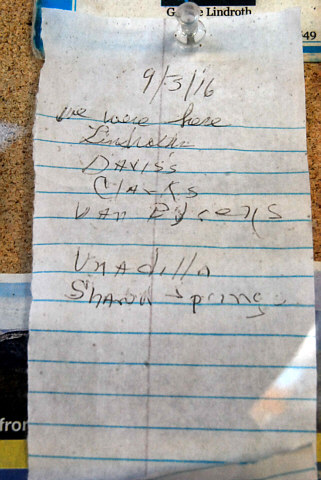 Lindroth
49
9/3/16
we were here
Lindroth
DAVIS'S
Clarks
VAN
Unadilla
Sharon Springs
from